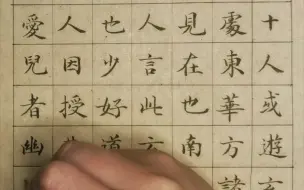 十人或遊
處東華方
見在也南
人言此
也少好道
人因授
愛兒者幽